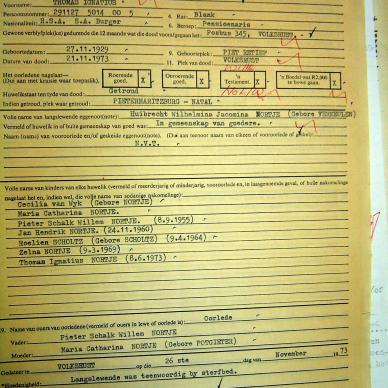 Voorname: THOMAS IGNATIUS
Persoonsnommer: 291127 5014 00 5 4. Ras: Blank
Nasionaliteit: R.S.A. S.A. Burger 6. Beroep: Pensioenaris
Gewone verblyfplek(ke) gedurende die 12 maande wat die dood voorafgegaan het: Posbus 345, VOLKSRUST
Geboortedatum: 27.11.1929 9. Geboorteplek: PIET RETIEF
Datum van dood: 21.11.1973 11. Plek van dood: VOLKSRUST
Het oorledene nagelaat:—
(Dui aan met kruis waar toepaslik).
Roerende goed. X
Onroerende goed. X
'n Testament. X
'n Boedel wat R2,000 te bowe gaan. X
Huwelikstaat ten tyde van dood: Getroud
Indien getroud, plek waar getroud: PIETERMARITZBURG - NATAL
Volle name van langslewende eggenoot(note): Huibrecht Wilhelmina Jacomina NORTJE (Gebore VERMEULEN)
Vermeld of huwelik in of buite gemeenskap van goed was: In gemeenskap van goedere.
Naam (name) van vooroorlede en/of geskeide eggenoot(note).
N.V.T.
Volle name van kinders van elke huwelik
Cecilia van Wyk (Gebore NORTJE)
Maria Catharina NORTJE.
Pieter Schalk Willem NORTJE. (8.9.1955)
Jan Hendrik NORTJE. (24.11.1960)
Roelien SCHOLTZ (Gebore SCHOLTZ) (9.4.1964)
Zelna NORTJE (9.3.1969)
Thomas Ignatius NORTJE (8.6.1973)
9. Name van ouers van oorledene (vermeld of ouers in lewe of oorlede is): Oorlede
Vader: Pieter Schalk Willem NORTJE
Moeder: Maria Catharina NORTJE (Gebore POTGIETER)
Gedateer te VOLKSRUST op die 26 ste dag van November 73
Langslewende was teenwoordig by sterfbed.